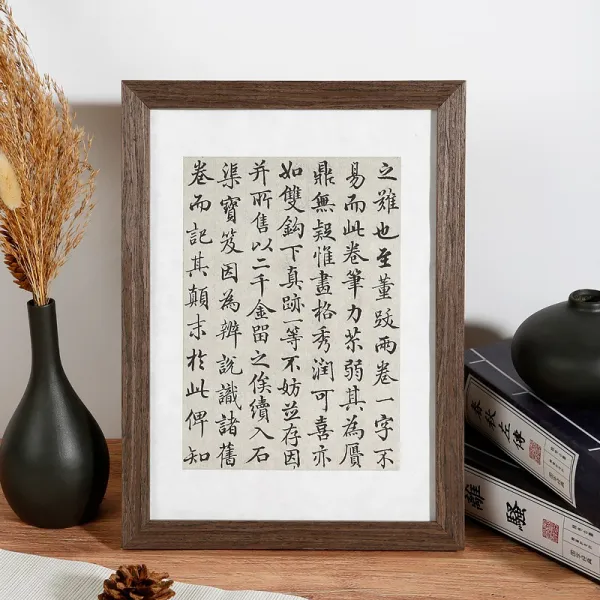 之難也至董跋兩卷一字不
易而此卷筆力苶弱其為贋
鼎無疑惟畫格秀潤可喜亦
如雙鈎下真跡一等不妨並存因
并所售以二千金留之俟續入石
渠寶笈因為辨說識諸舊
卷而記其顛末於此俾知
春秋左傳
離騷